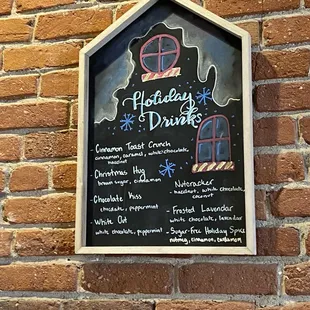 Holiday
Drinks
- Cinnamon Toast Crunch
cinnamon, caramel, white chocolate,
hazelnut
- Christmas Hug
brown sugar, cinnamon
- Chocolate Kiss
chocolate, peppermint
- White Out
white chocolate, peppermint
- Nutcracker
- hazelnut, white chocolate,
coconut
- Frosted Lavendar
white chocolate, lavendar
- Sugar-Free Holiday Spice
nutmeg, cinnamon, cardamom